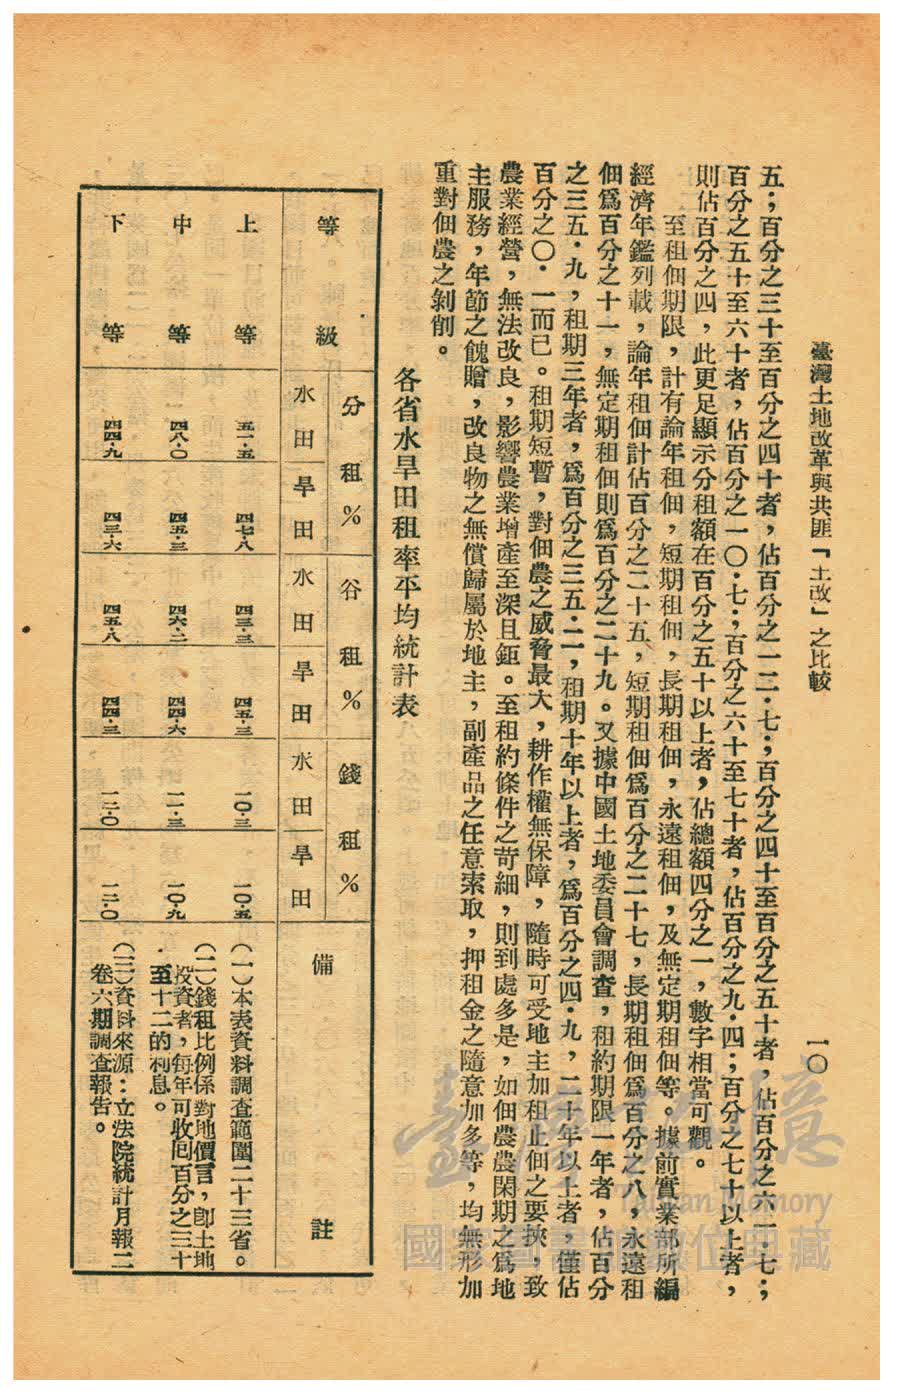 臺灣土地改革與共匪「土改」之比較
一〇
五；百分之三十至百分之四十者，佔百分之一二・七；百分之四十至百分之五十者，佔百分之六一・七；
百分之五十至六十者，佔百分之一〇・七；百分之六十至七十者，佔百分之九・四；百分之七十以上者，
則佔百分之四，此更足顯示分租額在百分之五十以上者，佔總額四分之一，數字相當可觀。
至租佃期限，計有論年租佃，短期租佃，長期租佃，永遠租佃，及無定期租佃等。據前實業部所編
經濟年鑑列載，論年租佃計佔百分之二十五，短期租佃爲百分之二十七，長期租佃爲百分之八，永遠租
佃爲百分之十一，無定期租佃則爲百分之二十九。又據中國土地委員會調查，租約期限一年者，佔百分
之三五・九，租期三年者，爲百分之三五・二，租期十年以上者，爲百分之四・九，二十年以上者，僅佔
百分之〇・一而已。租期短暫，對佃農之威脅最大，耕作權無保障，隨時可受地主加租止佃之要挾，致
農業經營，無法改良，影響農業增產至深且鉅。至租約條件之苛細，則到處多是，如佃農農閑期之爲地
主服務，年節之餽贈，改良物之無償歸屬於地主，副產品之任意索取，押租金之隨意加多等，均無形加
重對佃農之剝削。
各省水旱田租率平均統計表
等級 分租％ 谷租％ 錢租％ 備註
水田 旱田 水田 旱田 水田 旱田
上等 五一・五 四七・八 四三・三 四五・三 一〇・三 一〇・五
中等 四八・〇 四五・三 四六・二 四四・六 一一・三 一〇・九
下等 四四・九 四三・六 四五・八 四四・三 一二・〇 一二・〇
（一）本表資料調查範圍二十三省。
（二）錢租比例係對地價言，卽土地
投資者，每年可收囘百分之三十
・至十二的利息。
（三）資料來源：立法院統計月報二
卷六期調查報告。
臺灣記憶
Taiwan Memory
國家圖書館數位典藏